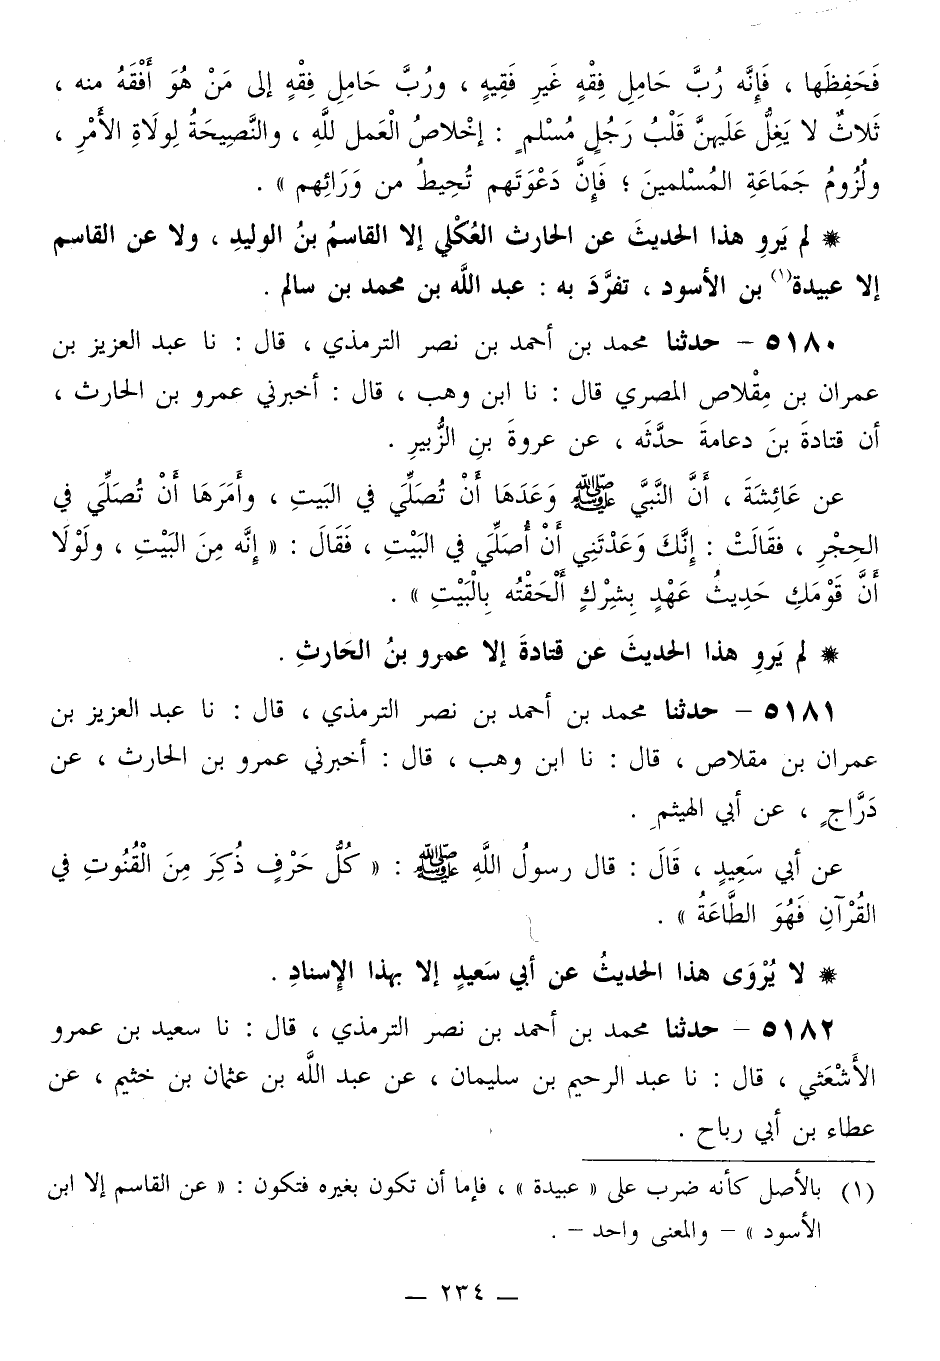 فَحَفِظَها ، فَإِنَّه رُبَّ حَامِلِ فِقْهٍ غَيرِ فَقِيهٍ ، ورُبَّ حَامِلِ فِقْهٍ إلى مَنْ هُوَ أَفْقَهُ منه ،
ثَلاثٌ لا يَغِلُّ عَلَيهنَّ قَلْبُ رَجُلٍ مُسْلمٍ : إخْلاصُ الْعَمل للَّهِ ، والنَّصِيحَةُ لِولَاةِ الأَمْرِ ،
ولُزُومُ جَمَاعَةِ المُسْلمينَ ؛ فَإِنَّ دَعْوَتَهم تُحِيطُ من وَرَائِهم » .
* لم يَروِ هذا الحديثَ عن الحارث العُكْلي إلا القاسمُ بنُ الوليدِ ، ولا عن القاسم
إلا عبيدة(١) بن الأسود ، تفرَّدَ به : عبد اللَّه بن محمد بن سالم .
٥١٨٠ – حدثنا محمد بن أحمد بن نصر الترمذي ، قال : نا عبد العزيز بن
عمران بن مِقْلاص المصري قال : نا ابن وهب ، قال : أخبرني عمرو بن الحارث ،
أن قتادةَ بنَ دعامةَ حدَّثَه ، عن عروةَ بنِ الزُّبيرِ .
عن عَائِشَةَ ، أَنَّ النَّبيَّ ﷺ وَعَدَهَا أَنْ تُصَلِّيَ في البَيتِ ، وأَمَرَهَا أَنْ تُصَلِّيَ في
الحِجْرِ ، فقَالَتْ : إِنَّكَ وَعَدْتَنِي أَنْ أُصَلِّيَ في البَيْتِ ، فَقَالَ : « إِنَّه مِنَ البَيْتِ ، ولَوْلَا
أَنَّ قَوْمَكِ حَدِيثُ عَهْدٍ بِشِرْكٍ أَلْحَقْتُه بِالْبَيْتِ » .
* لم يَروِ هذا الحديثَ عن قتادةَ إلا عمرو بنُ الحَارثِ .
٥١٨١ – حدثنا محمد بن أحمد بن نصر الترمذي ، قال : نا عبد العزيز بن
عمران بن مقلاص ، قال : نا ابن وهب ، قال : أخبرني عمرو بن الحارث ، عن
دَرَّاجٍ ، عن أبي الهيثمِ .
عن أبي سَعِيدٍ ، قَالَ : قال رسولُ اللَّهِ ﷺ : « كُلُّ حَرْفٍ ذُكِرَ مِنَ الْقُنُوتِ في
القُرْآنِ فَهُوَ الطَّاعَةُ » .
* لا يُرْوَى هذا الحديثُ عن أبي سَعيدٍ إلا بهذا الإِسنادِ .
٥١٨٢ – حدثنا محمد بن أحمد بن نصر الترمذي ، قال : نا سعيد بن عمرو
الأَشْعَثي ، قال : نا عبد الرحيم بن سليمان ، عن عبد اللَّه بن عثمان بن خثيم ، عن
عطاء بن أبي رباح .
(١) بالأصل كأنه ضرب على « عبيدة » ، فإما أن تكون بغيره فتكون : « عن القاسم إلا ابن
الأسود » – والمعنى واحد – .
— ٢٣٤ —